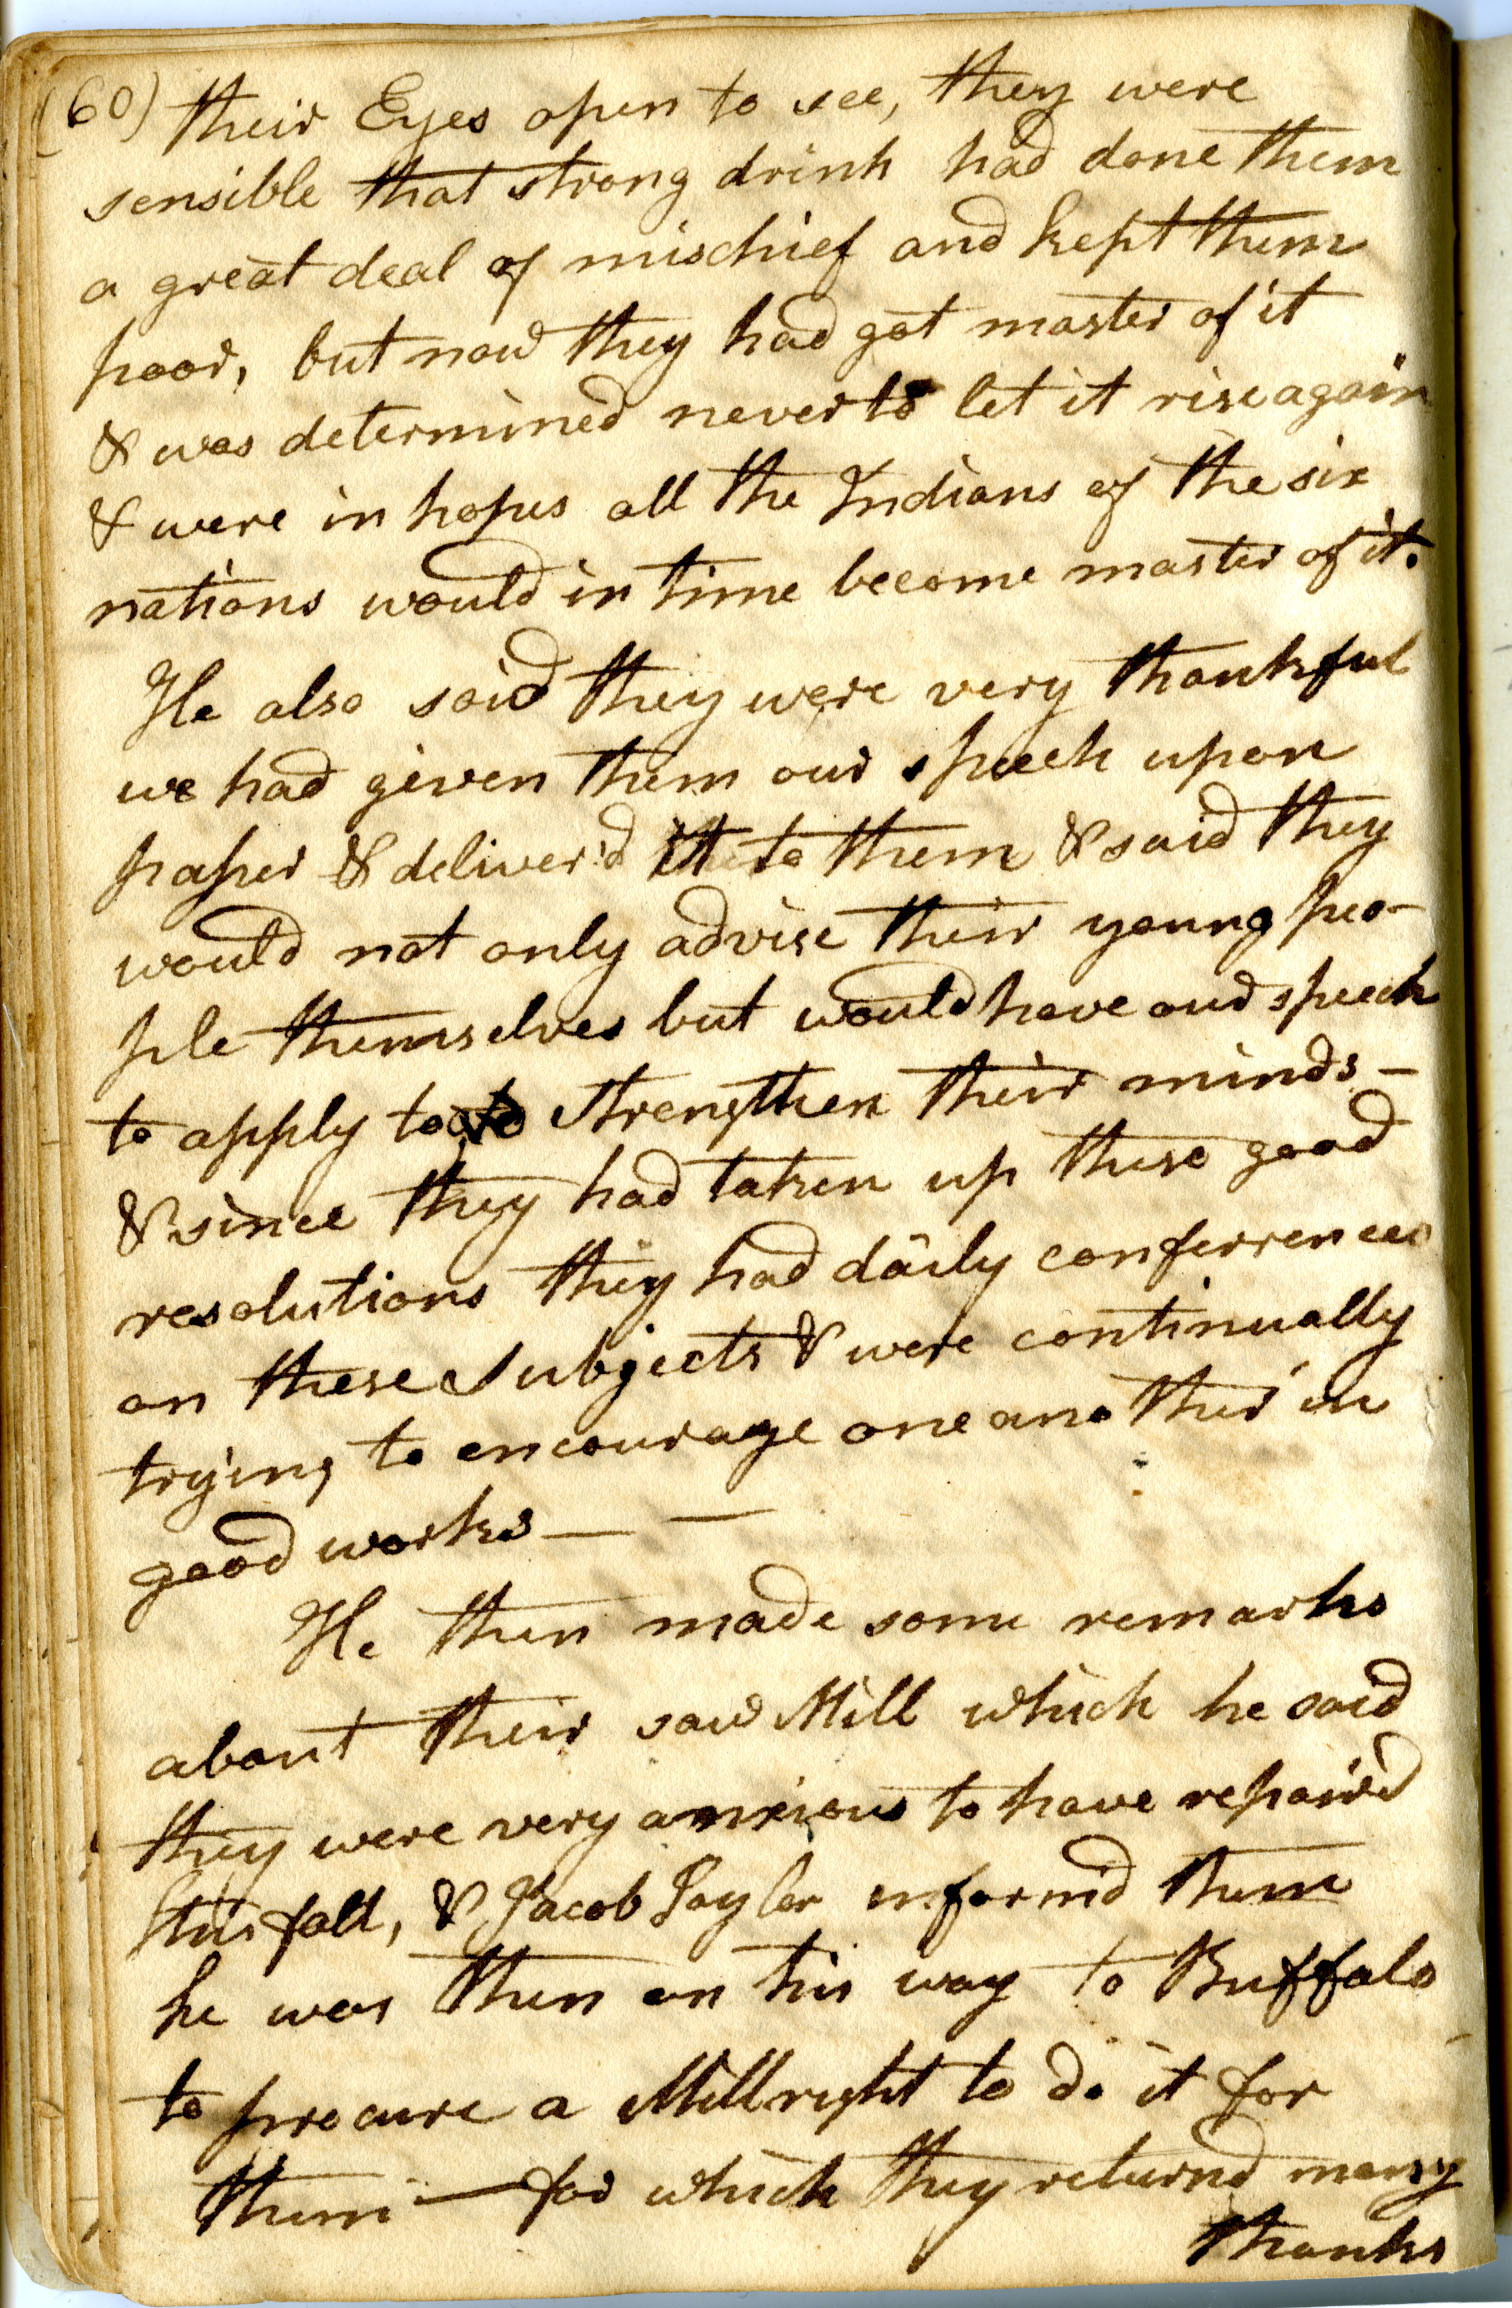 (60) their Eyes open to see, they were
sensible that strong drink had done them
a great deal of mischief and kept them
poor, but now they had got master of it
& was determined never to let it rise again
& were in hopes all the Indians of the six
nations would in time become master of it.
He also said they were very thankful
we had given them our speech upon
paper & deliver'd it to them & said they
would not only advise their young peo-
ple themselves but would have our speech
to apply to to strengthen their minds -
& since they had taken up these good
resolutions they had daily conferrences
on these subjects & were continually
trying to encourage one another in
good works — —
He then made some remarks
about their saw Mill which he said
they were very anxious to have repair'd
this fall, & Jacob Taylor inform'd them
he was then on his way to Buffalo
to procure a Millright to do it for
them — for which they returnd many
thanks